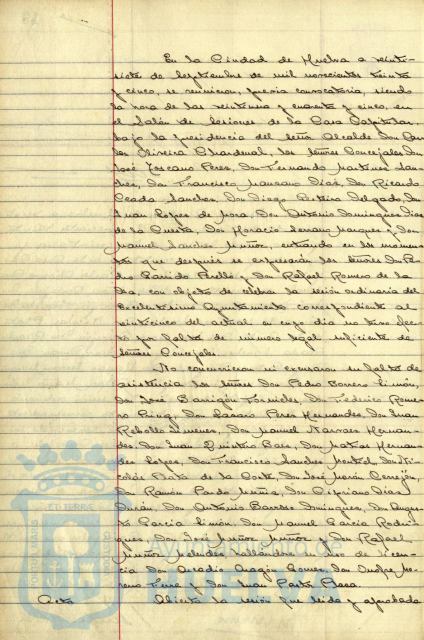 En la Ciudad de Huelva a veinti-
siete de Septiembre de mil novecientos treinta
y cinco, se reunieron, previa convocatoria, siendo
la hora de las veintiuna y cuarenta y cinco, en
el Salón de Sesiones de la Casa Capitular
bajo la presidencia del señor Alcalde Don Car-
los Oliveira Chardenal, los señores Concejales Don
José Toscano Pérez, Don Fernando Martínez San-
chez, Don Francisco Manzano Dias, Don Ricardo
Ceada Sanchez, Don Diego Delgado, Don
Juan Lopez de Mora, Don Antonio Dominguez Dias
de la Cuesta, Don Horacio Serrano Marquez y Don
Manuel Sanchez Muñoz, entrando en los momen-
tos que después se expresarán los señores Don Pe-
dro Garrido Perelló y Don Rafael Romero de la
Dia, con objeto de celebrar la sesión ordinaria del
Excelentísimo Ayuntamiento correspondiente al
veinticinco del actual en cuyo dia no tuvo efec-
to por falta de numero legal suficiente de
señores Concejales.
No concurrieron ni excusaron su falta de
asistencia los señores Don Pedro Borrero Limón,
Don José Barrigón Fornieles, Don Federico Rome-
ro Don Lazaro Perez Hernandez, Don Juan
Rebollo Jimenez, Don Manuel Narvaez Hernan-
dez, Don Juan Quintero Baez, Don Matias Hernan-
dez Lopez, Don Francisco Sanchez Don Ni-
colás de la Corte, Don José Morón Cerejón,
Don Ramón Pardo Don Cipriano Dias
Durán, Don Antonio Barroso Dominguez, Don Augus-
to Garcia Limón, Don Manuel Garcia Rodri-
guez, Don José Muñoz Muñoz y Don Rafael
Muñoz hallándose en uso de licen-
cia Don Arcadio Aragón Gomez, Don Onofre Mo-
reno y Don Juan
Acta Abierta la sesión fue leida y aprobada